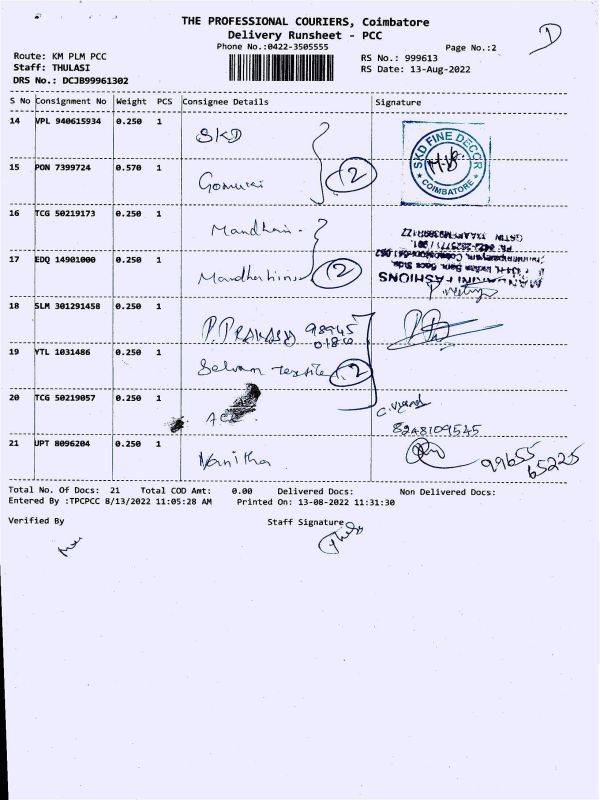 THE PROFESSIONAL COURIERS, Coimbatore
Delivery Runsheet - PCC
Phone No.:0422-3505555
Page No.:2
Route: KM PLM PCC
Staff: THULASI
DRS No.: DCJB99961302
RS No.: 999613
RS Date: 13-Aug-2022
S No Consignment No Weight PCS Consignee Details Signature
14 VPL 940615934 0.250 1 SKD
SKD FINE DECOR
COIMBATORE
15 PON 7399724 0.570 1 2
16 TCG 50219173 0.250 1
17 EDQ 14901000 0.250 1 2
FASHIONS
18 SLM 301291458 0.250 1
19 YTL 1031486 0.250 1 Selvam Textile 2
20 TCG 50219057 0.250 1
8248109545
21 UPT 8096204 0.250 1 Vanitha 99655
65225
Total No. Of Docs: 21 Total COD Amt: 0.00 Delivered Docs: Non Delivered Docs:
Entered By :TPCPCC 8/13/2022 11:05:28 AM Printed On: 13-08-2022 11:31:30
Verified By Staff Signature